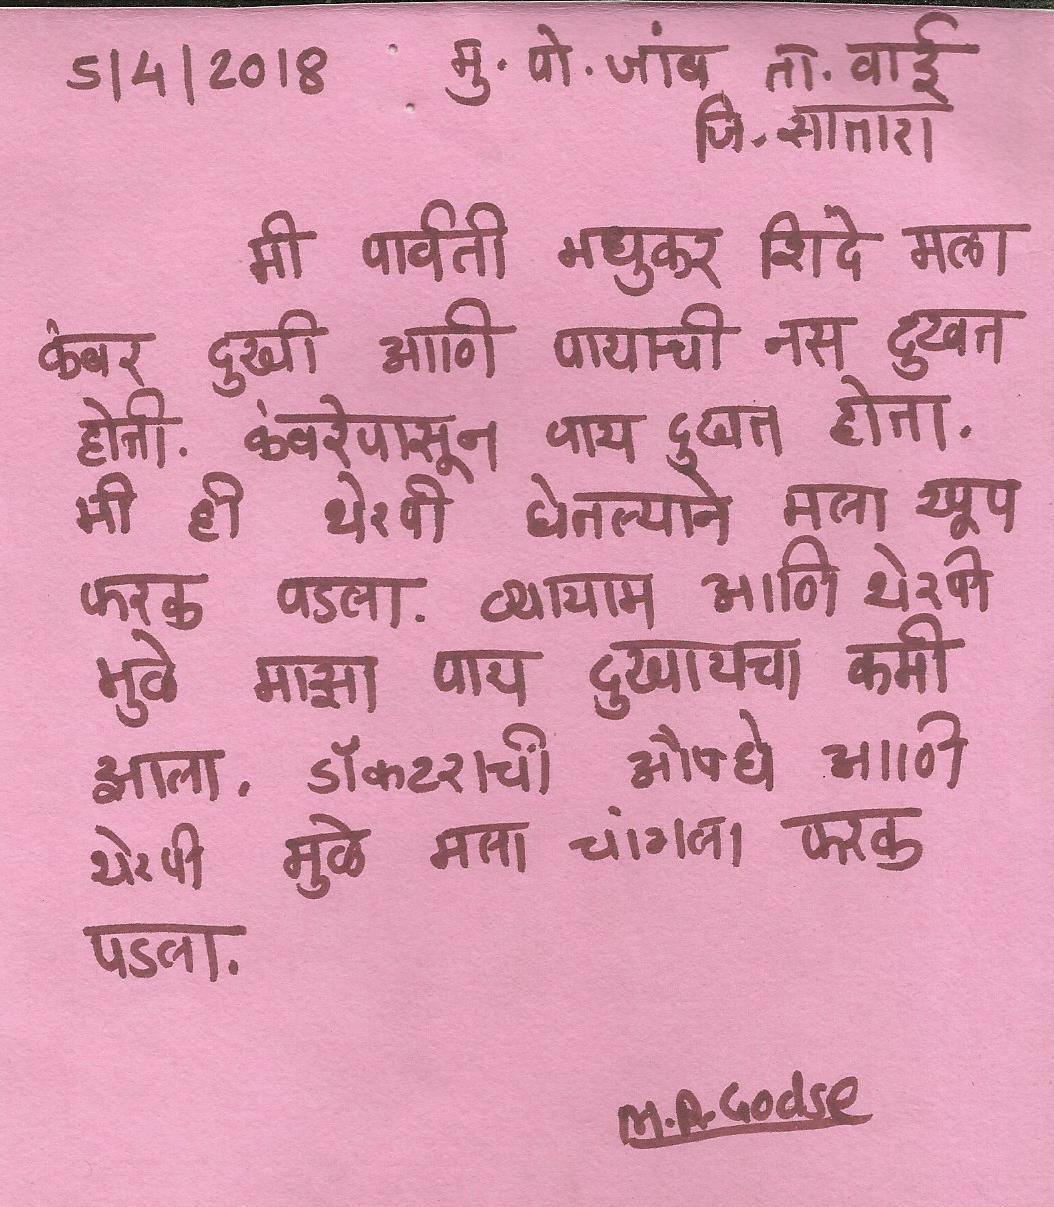 5/4/2018 मु. पो. जांब ता. वाई
जि. सातारा
मी पार्वती मधुकर शिंदे मला
कंबर दुखी आणि पायाची नस दुखत
होती. कंबरेपासून पाय दुखत होता.
मी ही थेरपी घेतल्याने मला खूप
फरक पडला. व्यायाम आणि थेरपी
मुळे माझा पाय दुखायचा कमी
झाला. डॉकटराची औषधे आणि
थेरपी मुळे मला चांगला फरक
पडला.
M.A.Godse